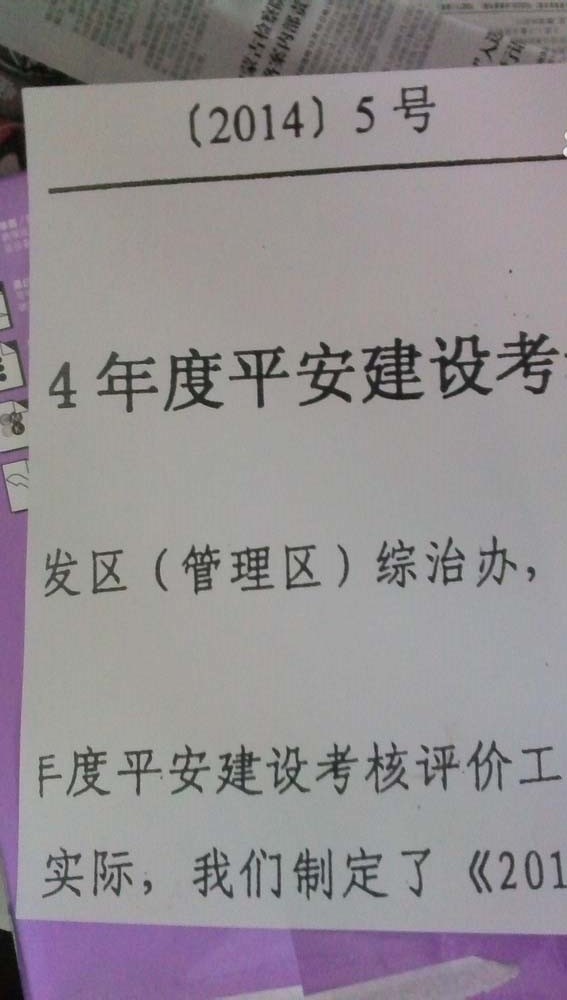 〔2014〕5号
4年度平安建设考
发区(管理区)综治办,
度平安建设考核评价工
实际,我们制定了《201